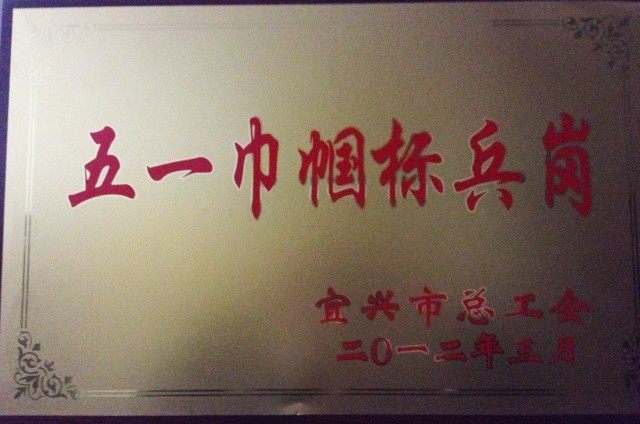 五一巾帼标兵岗
宜兴市总工会
二〇一二年三月